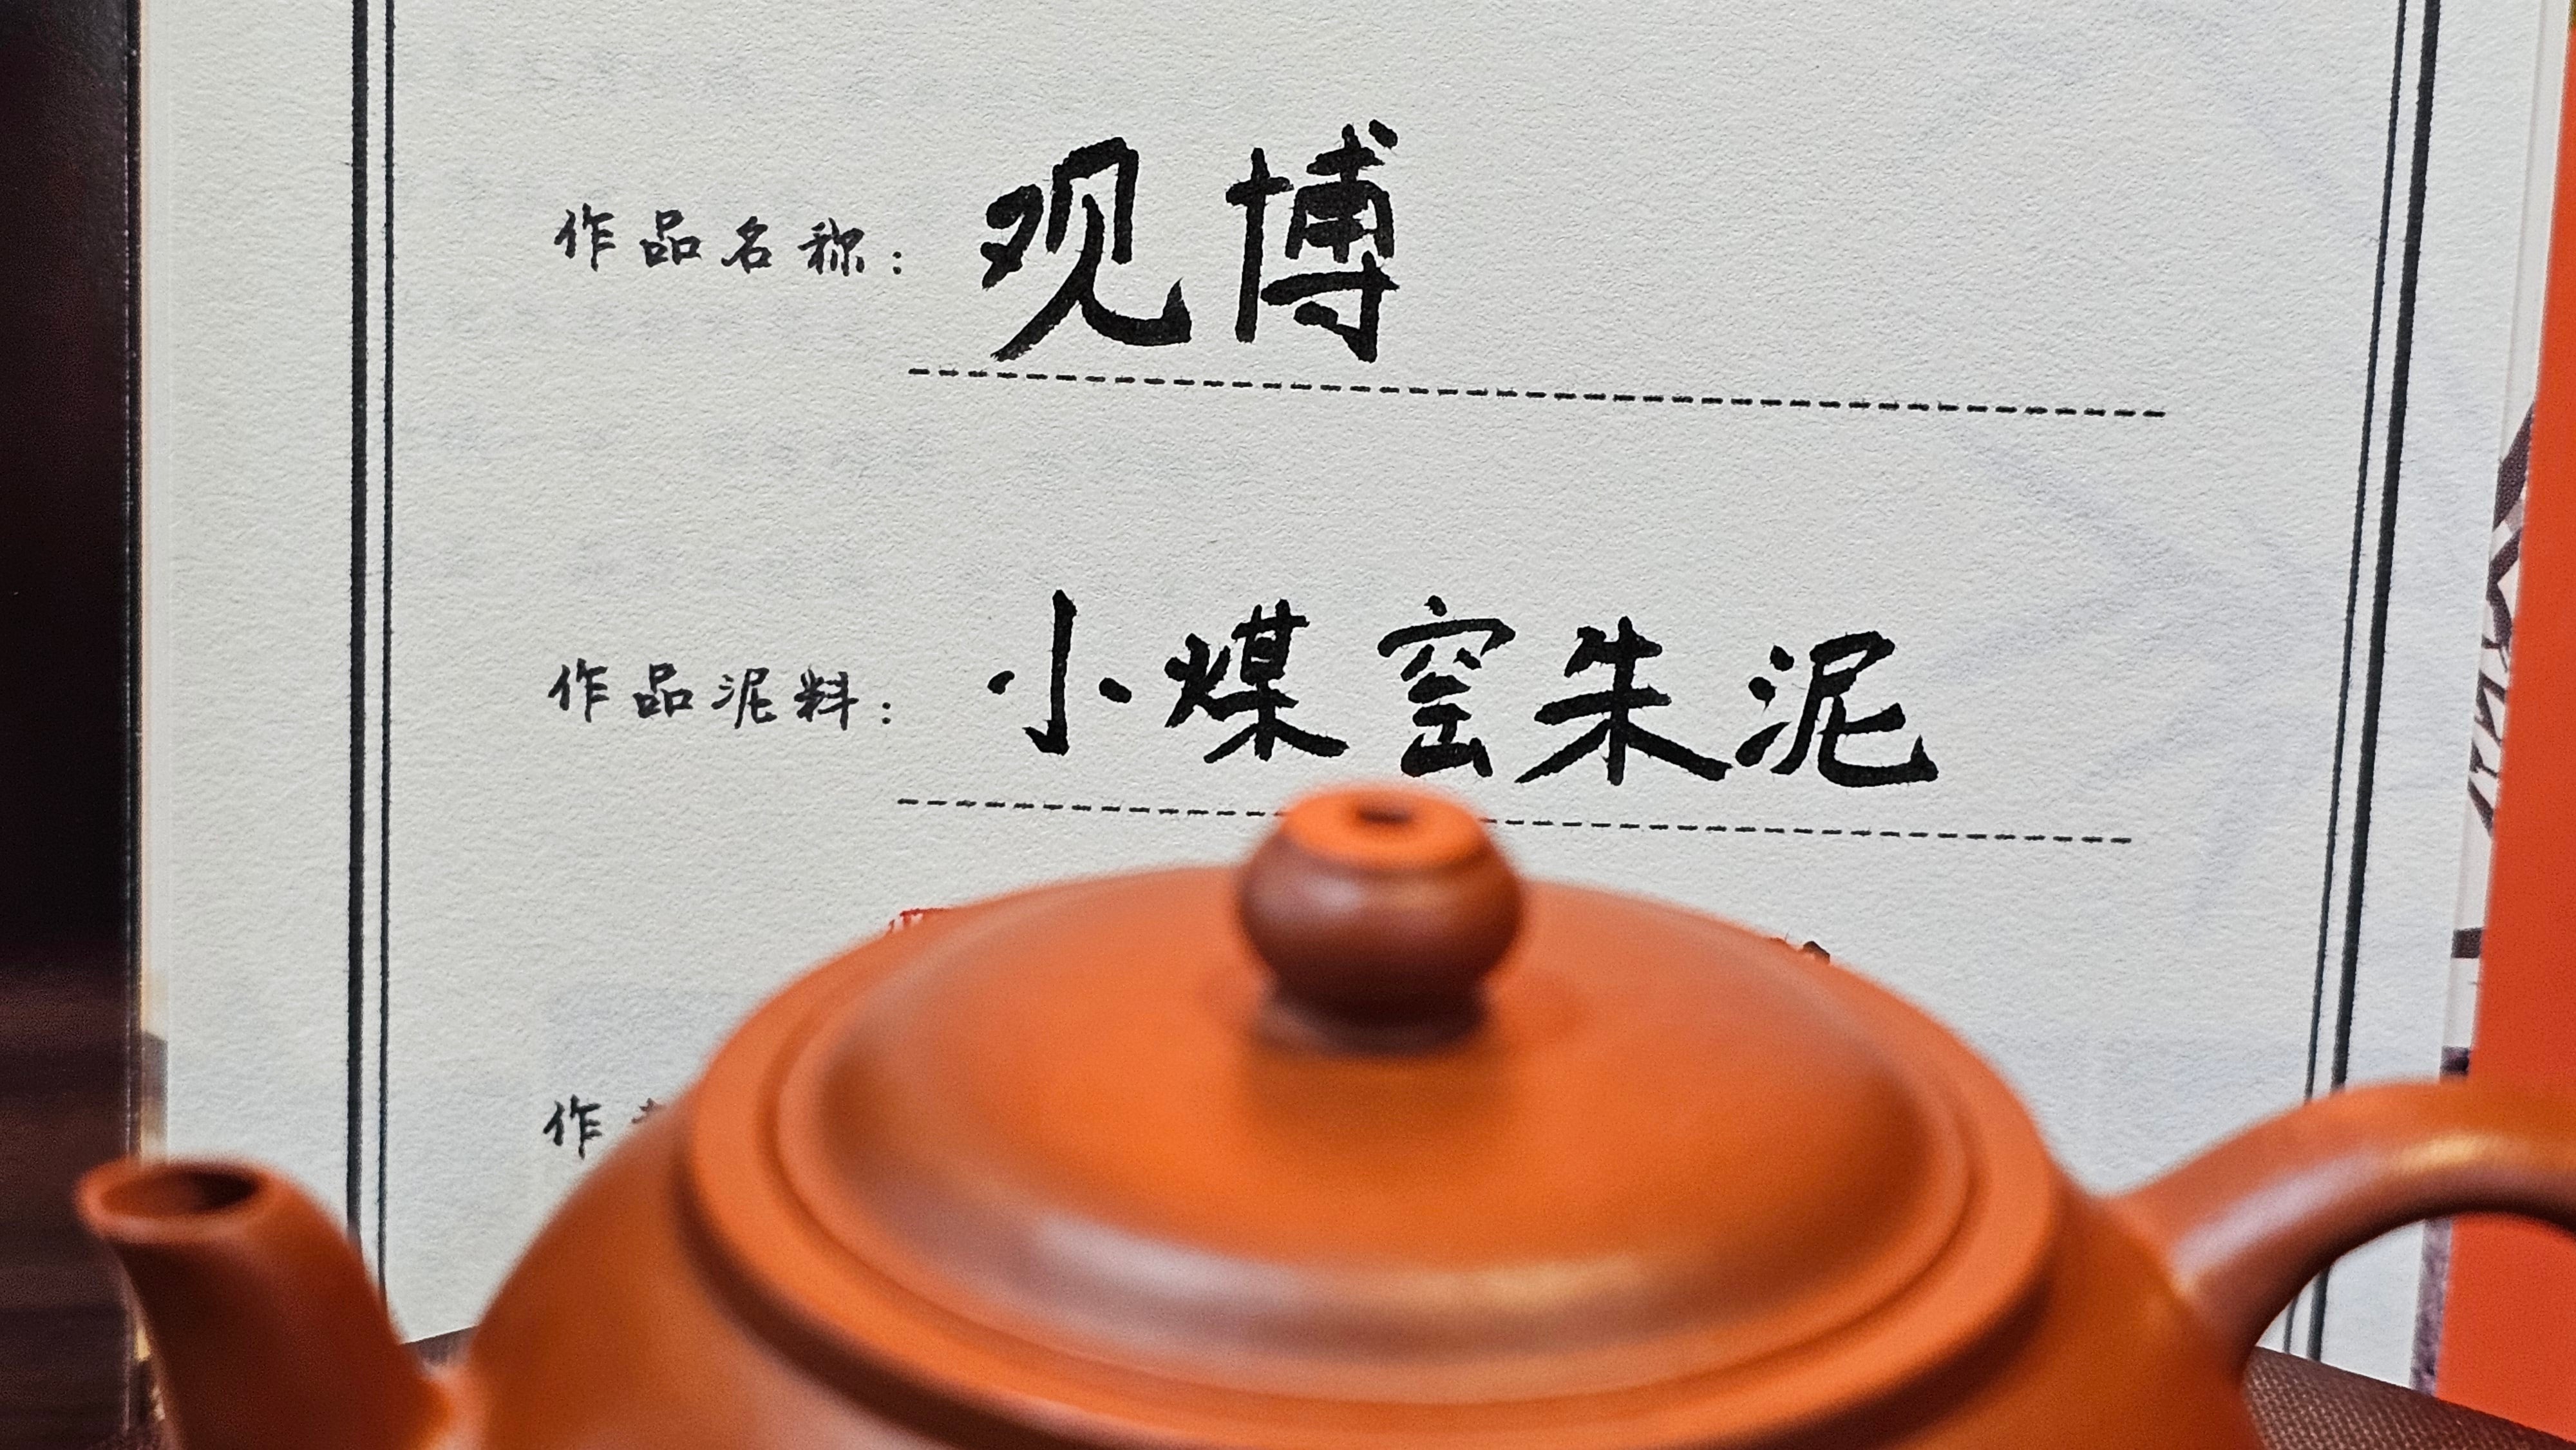 作品名称：观博
作品泥料：小煤窑朱泥
作